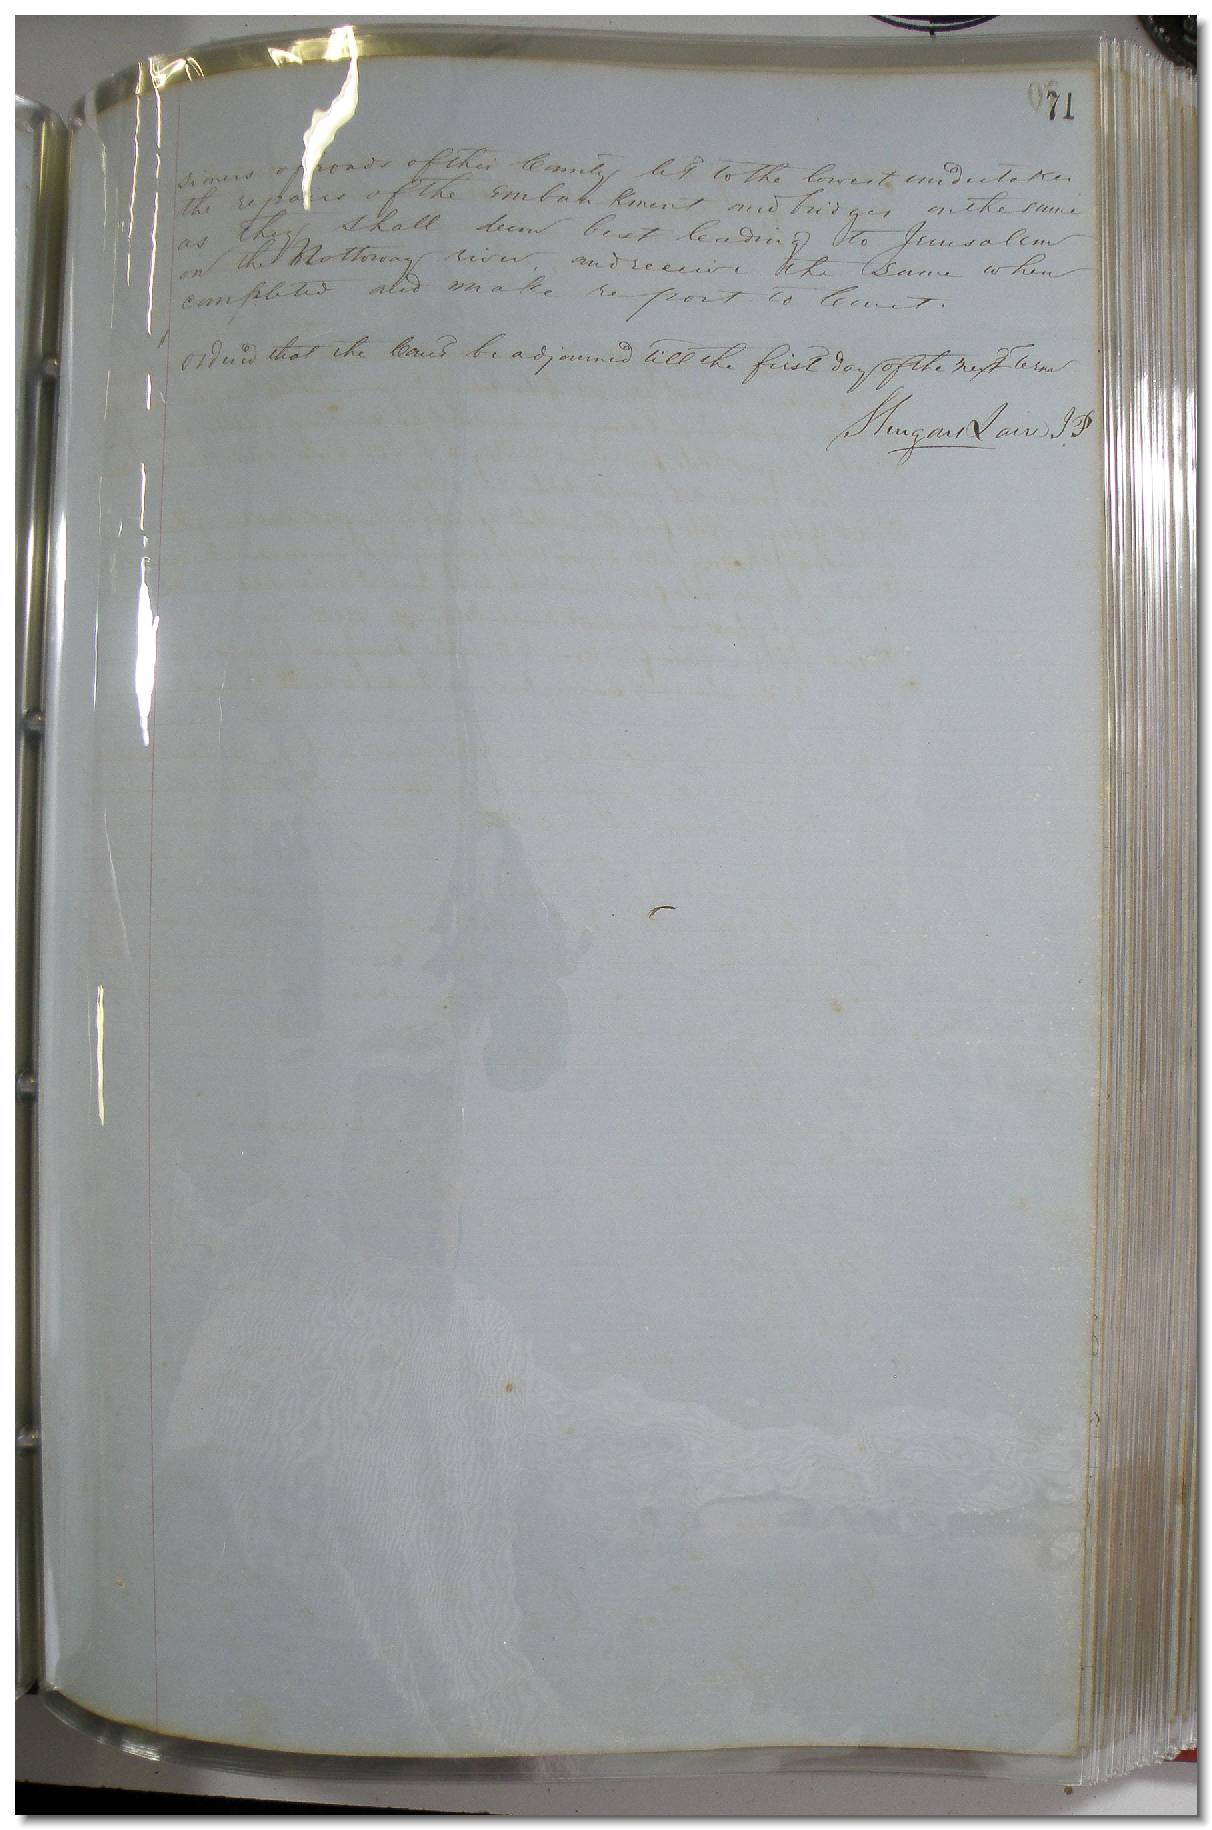 71
sioners of roads of this County let to the lowest undertaker
the repairs of the embankment and bridges on the same
as they shall deem best leading to Jerusalem
on the Nottoway river, and receive the same when
completed and make report to Court.
Ordered that the Court be adjourned till the first day of the next term
J.P